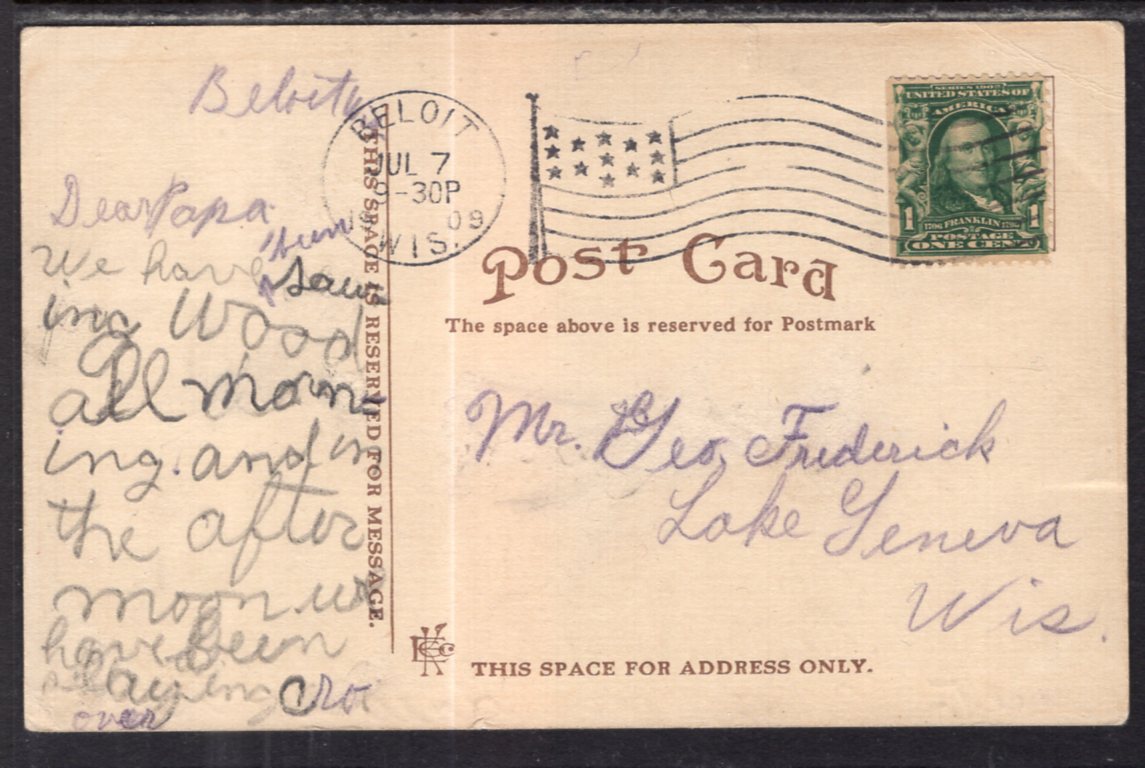 Beloit
Dear Papa
We have been saw
ing Wood
all morn-
ing. and in
the after
moon. we
have been
playing cro
over
THIS SPACE IS RESERVED FOR MESSAGE.
BELOIT
JUL 7
9-30P
1909
WIS.
SERIES 1902
UNITED STATES OF
AMERICA
1 1
1706 FRANKLIN 1790
POSTAGE
ONE CENT
Post Card
The space above is reserved for Postmark
Mr. Geo. Frederick
Lake Geneva
Wis.
THIS SPACE FOR ADDRESS ONLY.